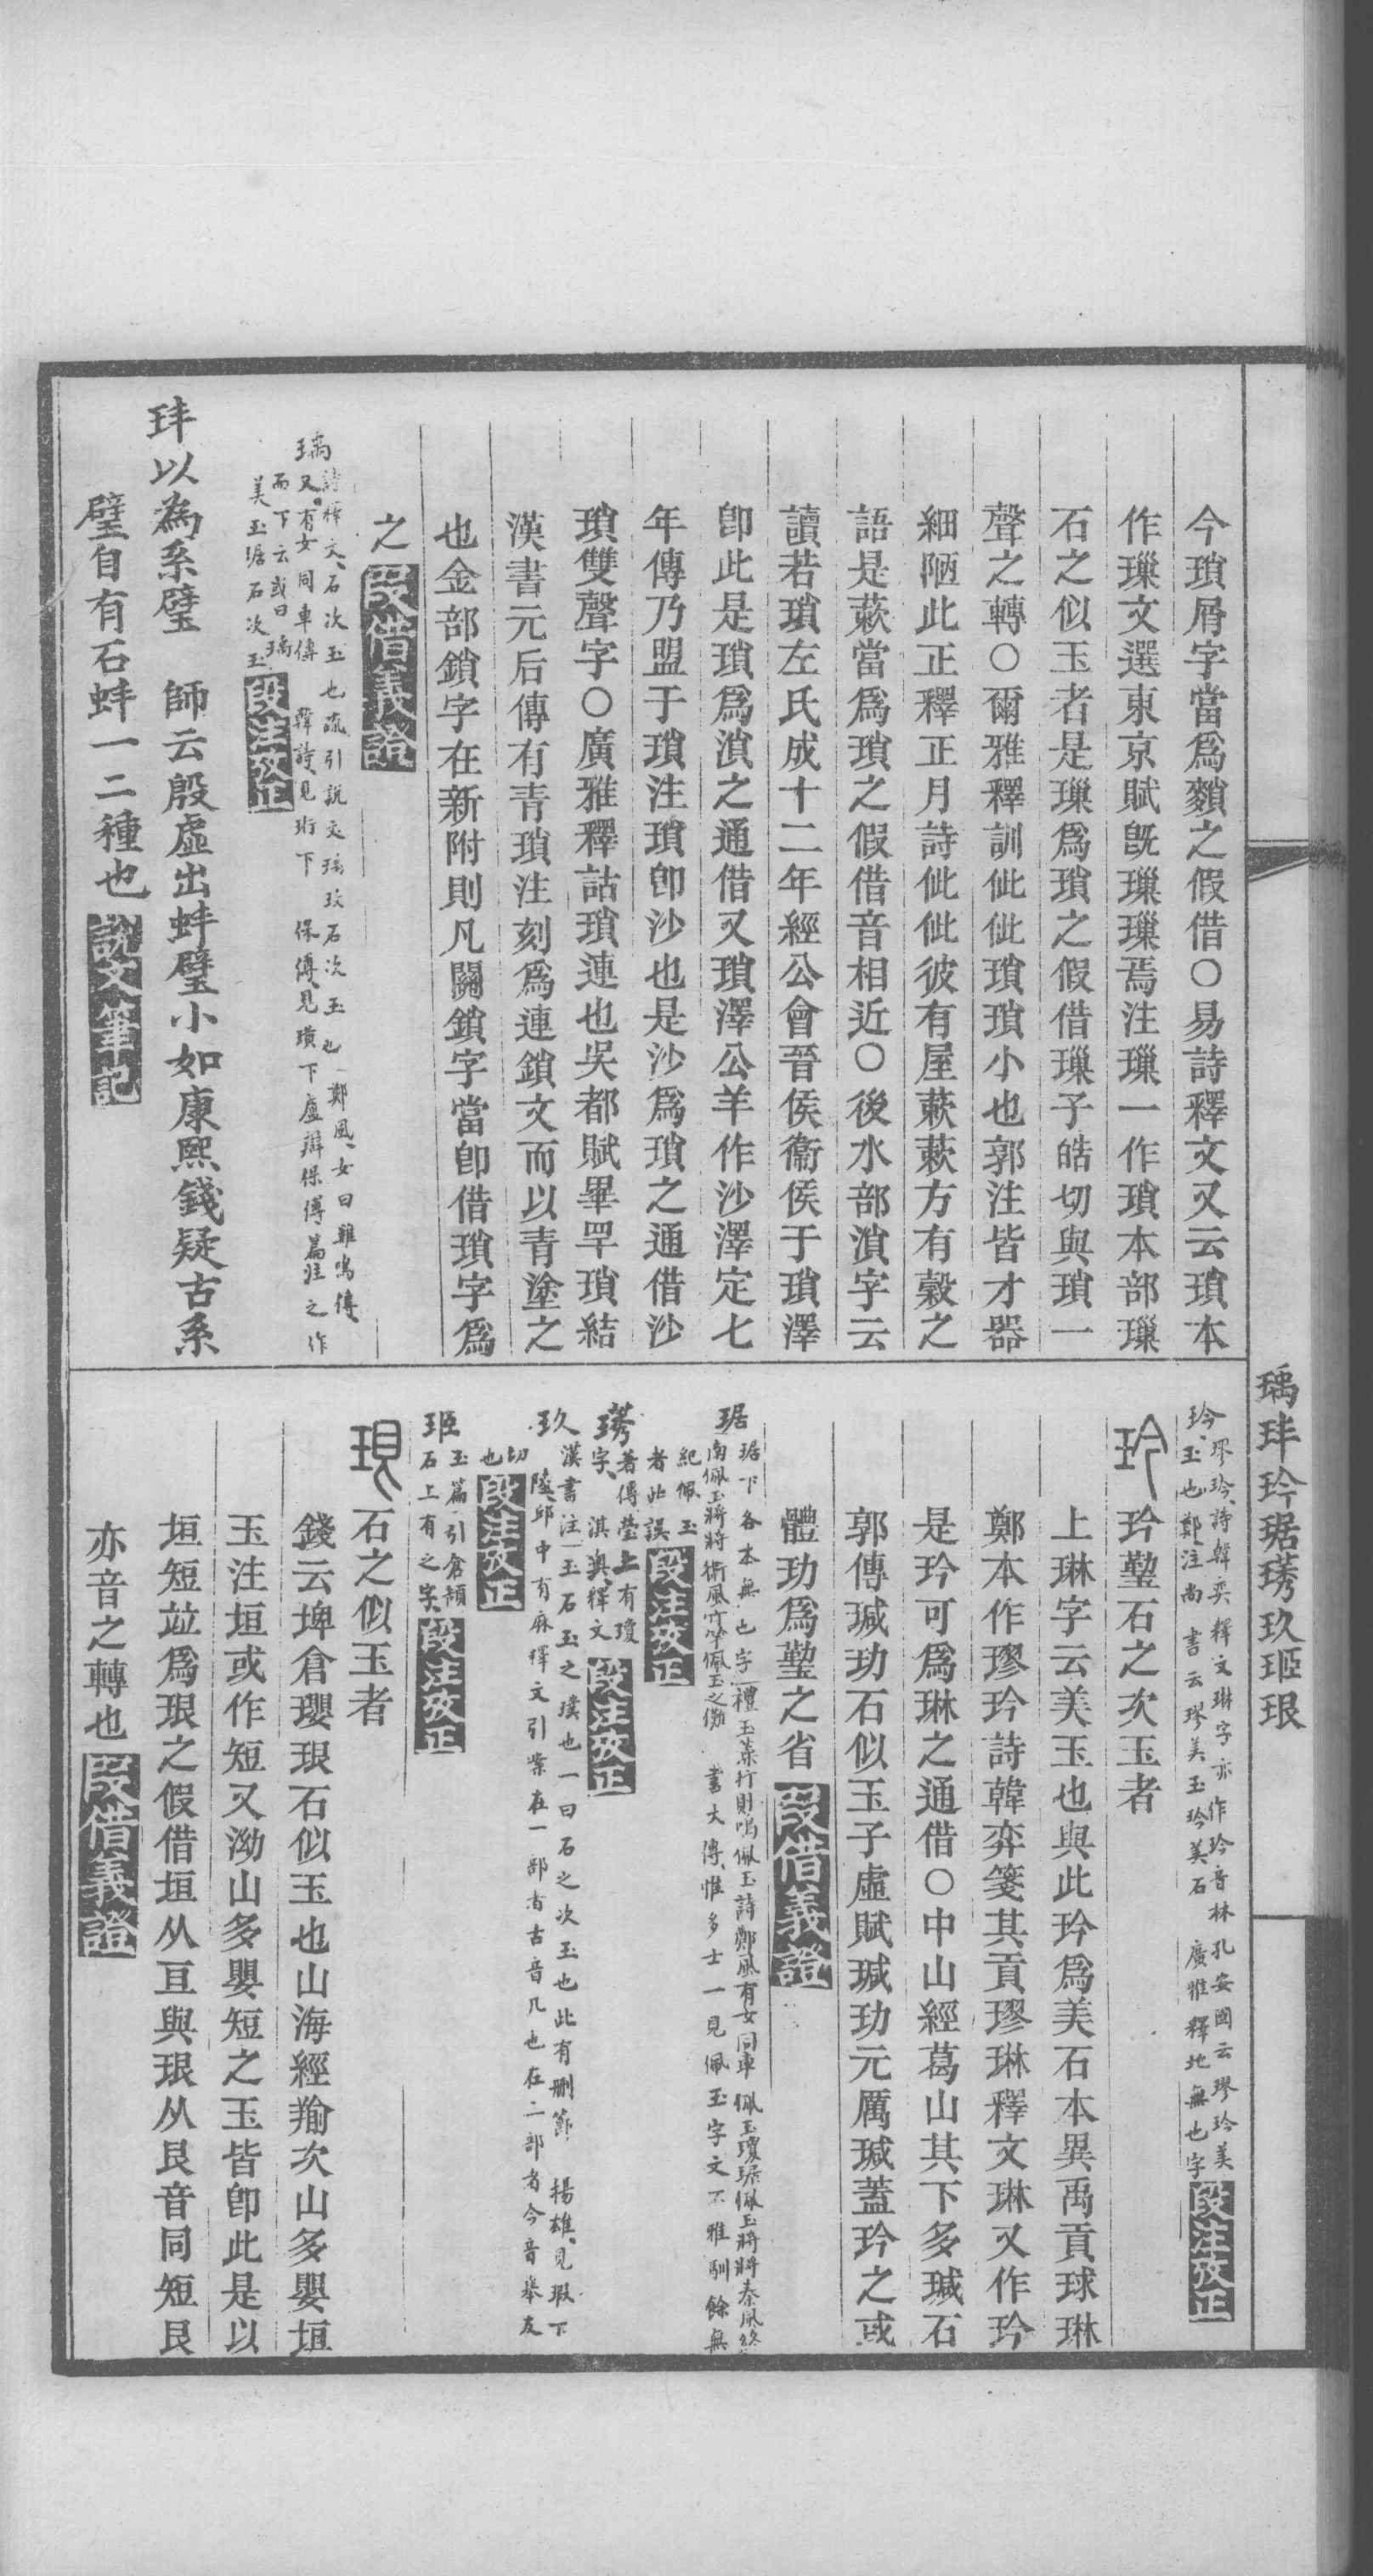 今瑣屑字當爲䵀之假借○易詩釋文又云瑣本
作璅文選東京賦旣璅璅焉注璅一作瑣本部璅
石之似玉者是璅爲瑣之假借璅子皓切與瑣一
聲之轉○爾雅釋訓佌佌瑣瑣小也郭注皆才器
細陋此正釋正月詩佌佌彼有屋蔌蔌方有穀之
語是蔌當爲瑣之假借音相近○後水部溑字云
讀若瑣左氏成十二年經公會晉侯衞侯于瑣澤
卽此是瑣爲溑之通借又瑣澤公羊作沙澤定七
年傳乃盟于瑣注瑣卽沙也是沙爲瑣之通借沙
瑣雙聲字○廣雅釋詁瑣連也吳都賦畢罕瑣結
漢書元后傳有青瑣注刻爲連鎖文而以青塗之
也金部鎖字在新附則凡關鎖字當卽借瑣字爲
之 叚借義證
瑀 詩釋文、石次玉也疏引說文瑀玖石次玉也 鄭風、女曰雞鳴傳、
又。有女同車傳 韓詩、見珩下 保傅見璜下盧辯保傅篇注之作
而下云或曰瑀
美玉琚石次玉 段注攷正
玤以為系璧 師云殷虛出蚌璧小如康熙錢疑古系
璧自有石蚌一二種也 說文筆記
瑀玤玪琚璓玖㺿珢
玪 璆玪、詩韓奕釋文琳字亦作玪音林孔安國云璆玪美
玉也鄭注尚書云璆美玉玪美石 廣雅釋地無也字 段注攷正
玪 玪㻸石之次玉者
上琳字云美玉也與此玪爲美石本異禹貢球琳
鄭本作璆玪詩韓弈箋其貢璆琳釋文琳又作玪
是玪可爲琳之通借○中山經葛山其下多瑊石
郭傳瑊玏石似玉子虛賦瑊玏元厲瑊蓋玪之或
體玏爲㻸之省 叚借義證
琚 琚下各本無也字 禮玉藻行則鳴佩玉詩鄭風有女同車 佩玉瓊琚佩玉將將秦風終
南佩玉將將衛風竹竿佩玉之儺 書大傳、惟多士一見佩玉字文不雅馴餘無
紀佩玉
者此誤 段注攷正
璓 著傳瑩上有瓊
字、淇奧釋文 段注攷正
玖 漢書注一玉石玉之璞也一曰石之次玉也此有刪節 楊雄、見瑕下
陸、邱中有麻釋文引案在一部者古音几也在二部者今音舉友
切
也 段注攷正
㺿 玉篇引倉頡
石上有之字 段注攷正
珢 石之似玉者
錢云埤倉瓔珢石似玉也山海經羭次山多嬰垣
玉注垣或作短又泑山多嬰短之玉皆卽此是以
垣短竝爲珢之假借垣从亘與珢从艮音同短艮
亦音之轉也 叚借義證